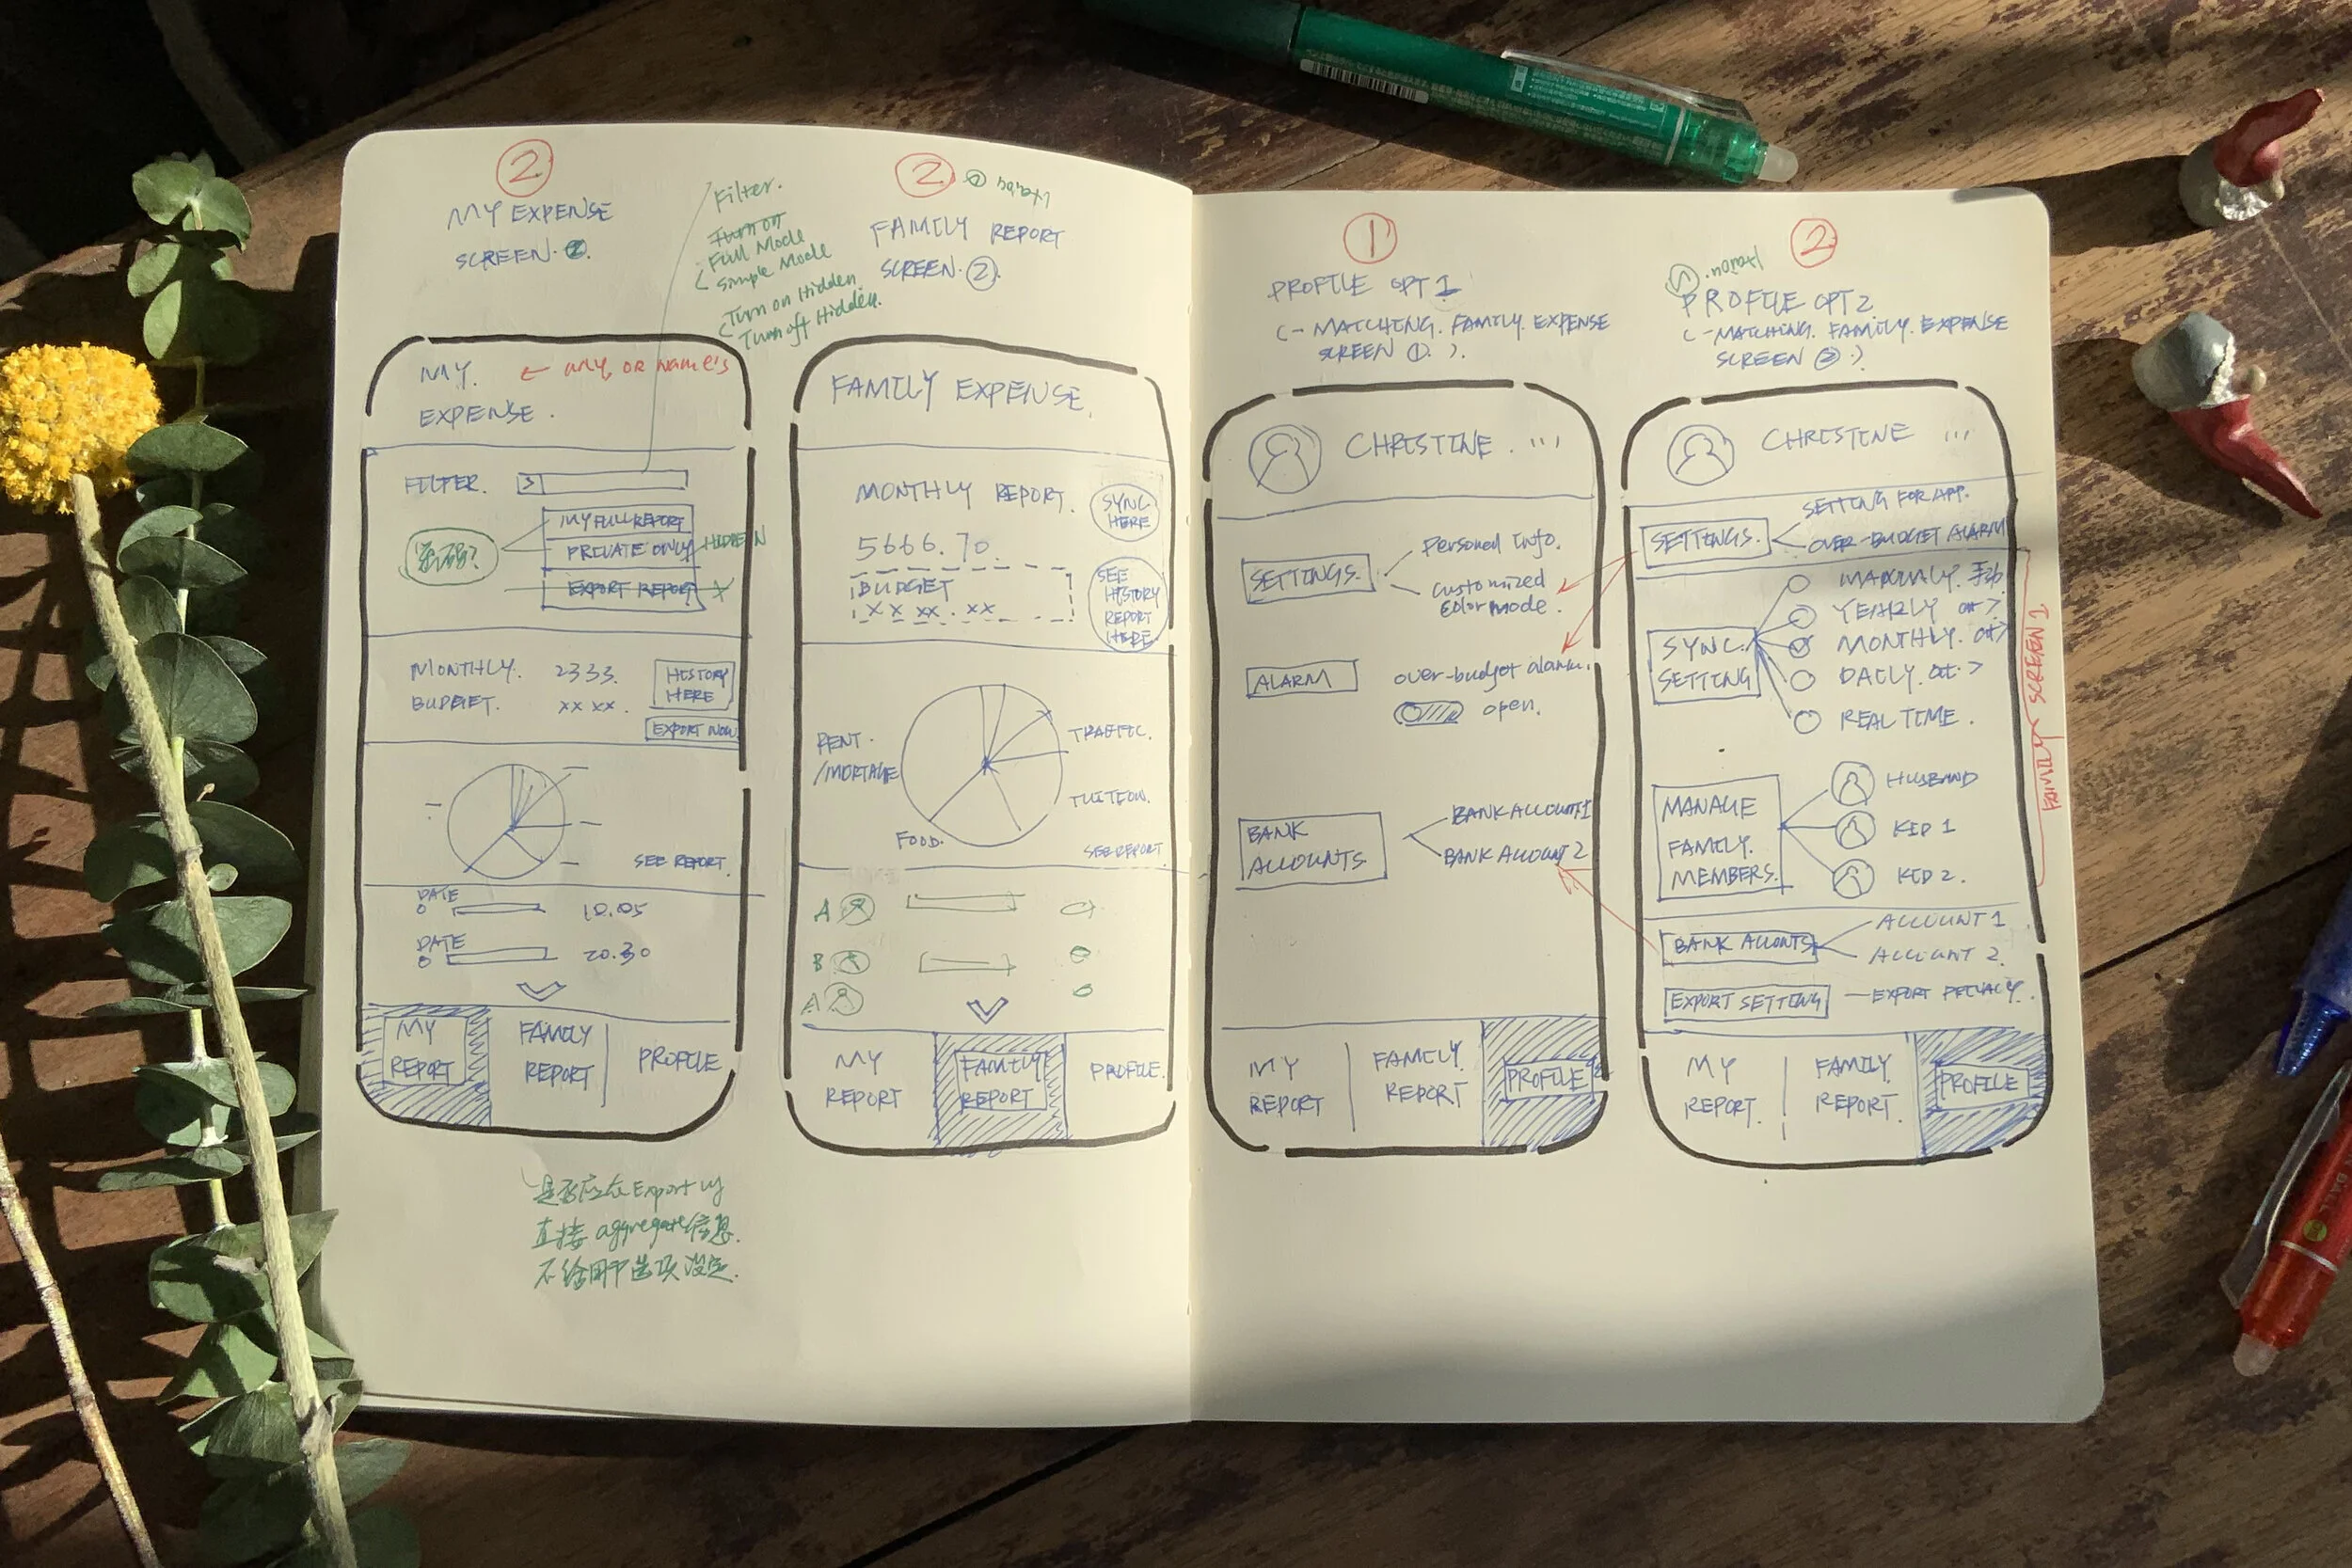 2
MY EXPENSE
SCREEN. 2.
Filter.
Turn on
Full Mode
Simple Mode
Turn on Hidden.
Turn off Hidden.
2
FAMILY REPORT
SCREEN. 2.
MY. ← my, or name's
EXPENSE.
FILTER. >
密码?
MY FULL REPORT
PRIVATE ONLY HIDDEN
EXPORT REPORT
MONTHLY. 2333.
BUDGET. xx xx.
HISTORY
HERE
EXPORT NOW
SEE REPORT.
DATE
10.05
DATE
20.30
MY
REPORT
FAMILY
REPORT
PROFILE
是否应在Export 时
直接 aggregate 信息.
不给用户选项设定.
FAMILY EXPENSE.
MONTHLY REPORT.
SYNC
HERE
5666.70.
BUDGET
xx xx. xx
SEE
HISTORY
REPORT
HERE
RENT.
/MORTAGE
TRAFFIC.
TUITION.
FOOD.
SEE REPORT
A
B
A
MY
REPORT
FAMILY
REPORT
PROFILE.
1
PROFILE OPT 1
(- MATCHING. FAMILY. EXPENSE
SCREEN 1. ).
CHRISTINE. ...
SETTINGS.
Personal Info.
Customized
Color mode.
ALARM
over-budget alarm.
open.
BANK
ACCOUNTS.
BANK ACCOUNT 1
BANK ACCOUNT 2
MY
REPORT
FAMILY.
REPORT
PROFILE
2
PROFILE OPT 2
(- MATCHING. FAMILY. EXPENSE
SCREEN 2 )
CHRISTINE ...
SETTINGS.
SETTING FOR APP.
OVER-BUDGET ALARM
SYNC.
SETTING
YEARLY at >
MONTHLY. at >
DAILY. at >
REAL TIME.
MANAGE
FAMILY.
MEMBERS.
HUSBAND
KID 1
KID 2.
FAMILY SCREEN 1
BANK ACCONTS
ACCOUNT 1
ACCOUNT 2.
EXPORT SETTING — EXPORT PRIVACY.
MY
REPORT.
FAMILY.
REPORT.
PROFILE